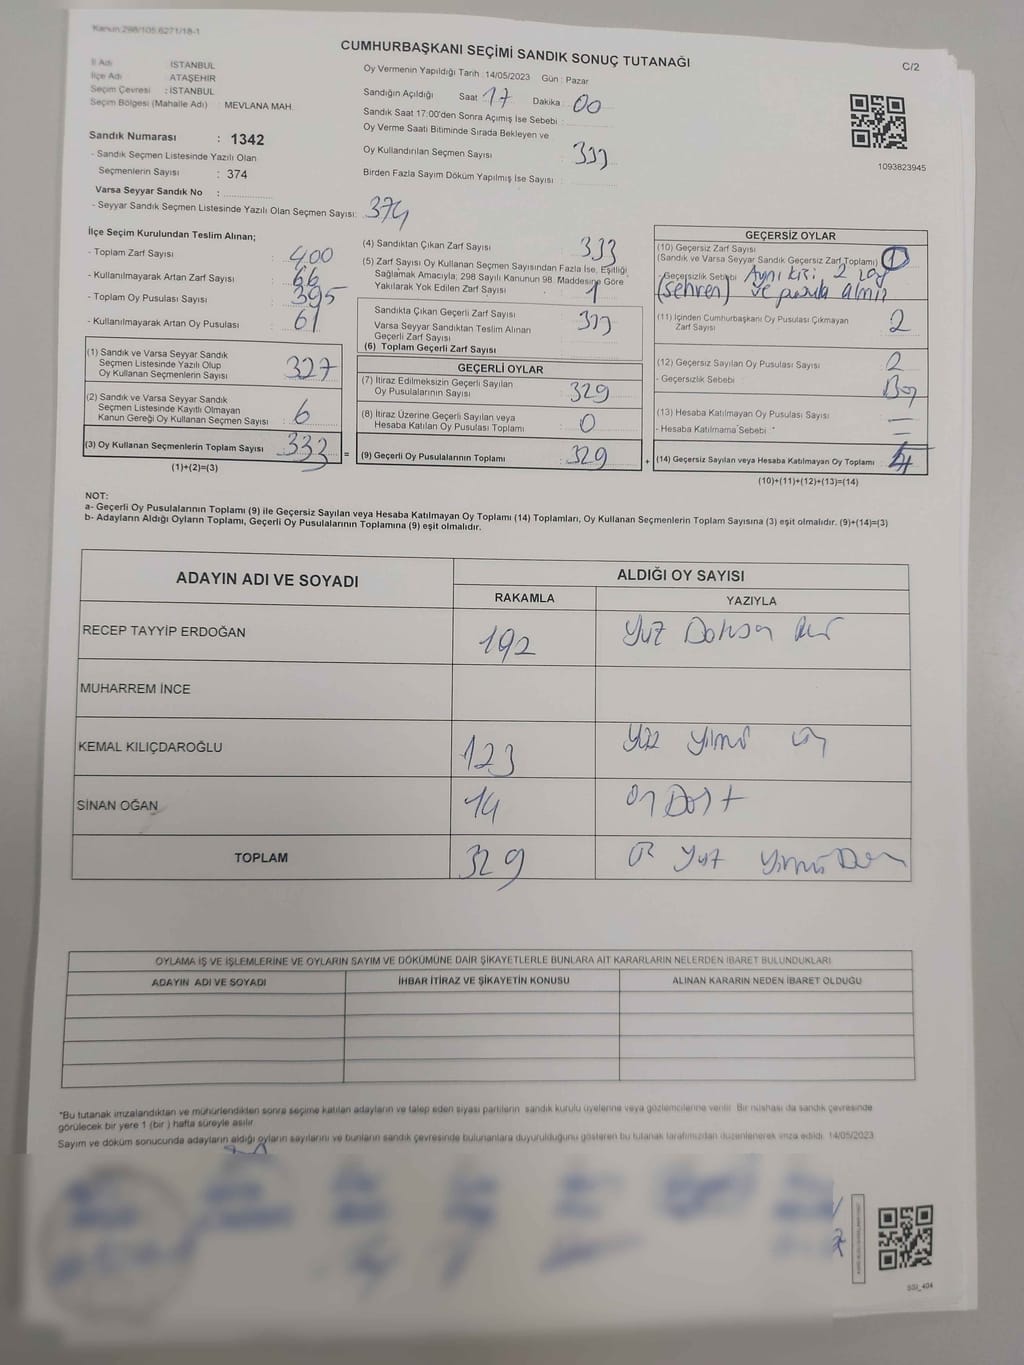 Kanun:298/105,6271/18-1
CUMHURBAŞKANI SEÇİMİ SANDIK SONUÇ TUTANAĞI
C/2
İl Adı : İSTANBUL
İlçe Adı : ATAŞEHİR
Seçim Çevresi : İSTANBUL
Seçim Bölgesi (Mahalle Adı) : MEVLANA MAH.
Sandık Numarası : 1342
- Sandık Seçmen Listesinde Yazılı Olan
Seçmenlerin Sayısı : 374
Varsa Seyyar Sandık No :
- Seyyar Sandık Seçmen Listesinde Yazılı Olan Seçmen Sayısı: 374
Oy Vermenin Yapıldığı Tarih : 14/05/2023 Gün : Pazar
Sandığın Açıldığı Saat 17 Dakika : 00
Sandık Saat 17:00'den Sonra Açımış İse Sebebi :
Oy Verme Saati Bitiminde Sırada Bekleyen ve
Oy Kullandırılan Seçmen Sayısı : 333
Birden Fazla Sayım Döküm Yapılmış İse Sayısı :
1093823945
İlçe Seçim Kurulundan Teslim Alınan;
- Toplam Zarf Sayısı : 400
- Kullanılmayarak Artan Zarf Sayısı : 66
- Toplam Oy Pusulası Sayısı : 395
- Kullanılmayarak Artan Oy Pusulası : 61
(1) Sandık ve Varsa Seyyar Sandık
Seçmen Listesinde Yazılı Olup
Oy Kullanan Seçmenlerin Sayısı : 327
(2) Sandık ve Varsa Seyyar Sandık
Seçmen Listesinde Kayıtlı Olmayan
Kanun Gereği Oy Kullanan Seçmen Sayısı : 6
(3) Oy Kullanan Seçmenlerin Toplam Sayısı : 333 =
(1)+(2)=(3)
(4) Sandıktan Çıkan Zarf Sayısı : 333
(5) Zarf Sayısı Oy Kullanan Seçmen Sayısından Fazla İse, Eşitliği
Sağlamak Amacıyla; 298 Sayılı Kanunun 98. Maddesine Göre
Yakılarak Yok Edilen Zarf Sayısı : 1
Sandıkta Çıkan Geçerli Zarf Sayısı : 333
Varsa Seyyar Sandıktan Teslim Alınan
Geçerli Zarf Sayısı :
(6) Toplam Geçerli Zarf Sayısı
GEÇERLİ OYLAR
(7) İtiraz Edilmeksizin Geçerli Sayılan
Oy Pusulalarının Sayısı : 329
(8) İtiraz Üzerine Geçerli Sayılan veya
Hesaba Katılan Oy Pusulası Toplamı : 0
(9) Geçerli Oy Pusulalarının Toplamı : 329 +
GEÇERSİZ OYLAR
(10) Geçersiz Zarf Sayısı
(Sandık ve Varsa Seyyar Sandık Geçersiz Zarf Toplamı) : 1
- Geçersizlik Sebebi Aynı kişi, 2 zarf
(sehven) ve pusula almış
(11) İçinden Cumhurbaşkanı Oy Pusulası Çıkmayan
Zarf Sayısı : 2
(12) Geçersiz Sayılan Oy Pusulası Sayısı : 2
- Geçersizlik Sebebi : Boş
(13) Hesaba Katılmayan Oy Pusulası Sayısı : —
- Hesaba Katılmama Sebebi : —
(14) Geçersiz Sayılan veya Hesaba Katılmayan Oy Toplamı : 4
(10)+(11)+(12)+(13)=(14)
NOT:
a- Geçerli Oy Pusulalarının Toplamı (9) ile Geçersiz Sayılan veya Hesaba Katılmayan Oy Toplamı (14) Toplamları, Oy Kullanan Seçmenlerin Toplam Sayısına (3) eşit olmalıdır. (9)+(14)=(3)
b- Adayların Aldığı Oyların Toplamı, Geçerli Oy Pusulalarının Toplamına (9) eşit olmalıdır.
ADAYIN ADI VE SOYADI ALDIĞI OY SAYISI
RAKAMLA YAZIYLA
RECEP TAYYİP ERDOĞAN 192 Yüz Doksan iki
MUHARREM İNCE
KEMAL KILIÇDAROĞLU 123 Yüz yirmi üç
SİNAN OĞAN 14 On Dört
TOPLAM 329 Üç Yüz yirmi Dokuz
OYLAMA İŞ VE İŞLEMLERİNE VE OYLARIN SAYIM VE DÖKÜMÜNE DAİR ŞİKAYETLERLE BUNLARA AİT KARARLARIN NELERDEN İBARET BULUNDUKLARI
ADAYIN ADI VE SOYADI İHBAR İTİRAZ VE ŞİKAYETİN KONUSU ALINAN KARARIN NEDEN İBARET OLDUĞU
*Bu tutanak imzalandıktan ve mühürlendikten sonra seçime katılan adayların ve talep eden siyasi partilerin sandık kurulu üyelerine veya gözlemcilerine verilir. Bir nüshası da sandık çevresinde
görülecek bir yere 1 (bir ) hafta süreyle asılır
Sayım ve döküm sonucunda adayların aldığı oyların sayılarını ve bunların sandık çevresinde bulunanlara duyurulduğunu gösteren bu tutanak tarafımızdan düzenlenerek imza edildi. 14/05/2023